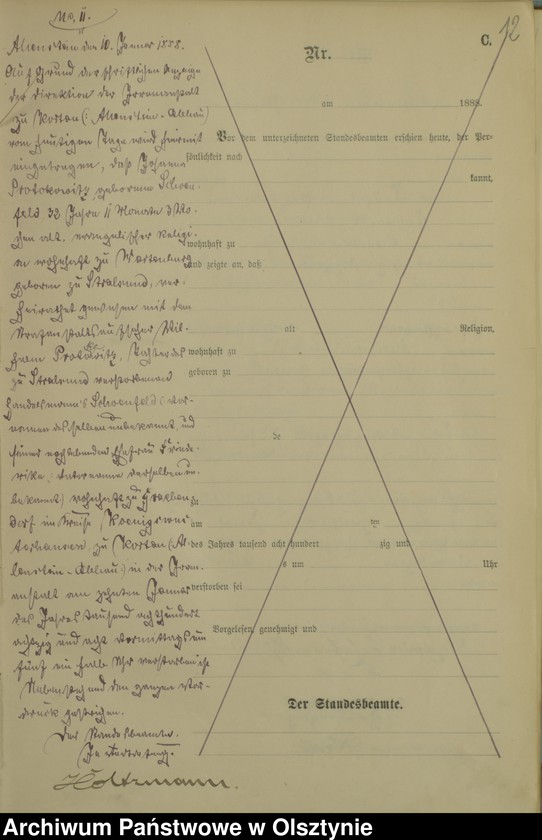 No. 11.
C. 12
Nr.
Allenstein den 10. Januar 1888.
Auf Grund der schriftlichen Anzeige
der Direktion der Irrenanstalt
zu Kortau (: Allenstein-Abbau)
vom heutigen Tage wird hiermit
eingetragen, daß Johanna
geborene Schoen-
feld 33 Jahre 11 Monate 3 Wo-
chen alt, evangelischer Religi-
on wohnhaft zu Wartenburg
geboren zu Stralsund, ver-
heirathet gewesen mit dem
Strafanstaltsaufseher Wil-
helm Tochter des
zu Stralsund verstorbenen
Handelsmann's Schoenfeld (Vor-
namen desselben unbekannt) und
seiner Ehefrau Friede-
rike, (Vatername derselben un-
bekannt) wohnhaft zu
dorf im Kreise Koenigswus-
terhausen, zu Kortau (Al-
lenstein-Abbau) in der Irren-
anstalt am zehnten Januar
des Jahres tausend achthundert
achtzig und acht Vormittags um
fünf ein halb Uhr verstorben ist
Nebenstehend den ganzen Vor-
druck gestrichen.
Der Standesbeamte.
In Vertretung.
Holtzmann.
am 1888.
Vor dem unterzeichneten Standesbeamten erschien heute, der Per-
sönlichkeit nach
kannt,
wohnhaft zu
und zeigte an, daß
alt Religion,
wohnhaft zu
geboren zu
de
zu
am ten
des Jahres tausend acht hundert zig und
s um Uhr
verstorben sei
Vorgelesen, genehmigt und
Der Standesbeamte.
Archiwum Państwowe w Olsztynie